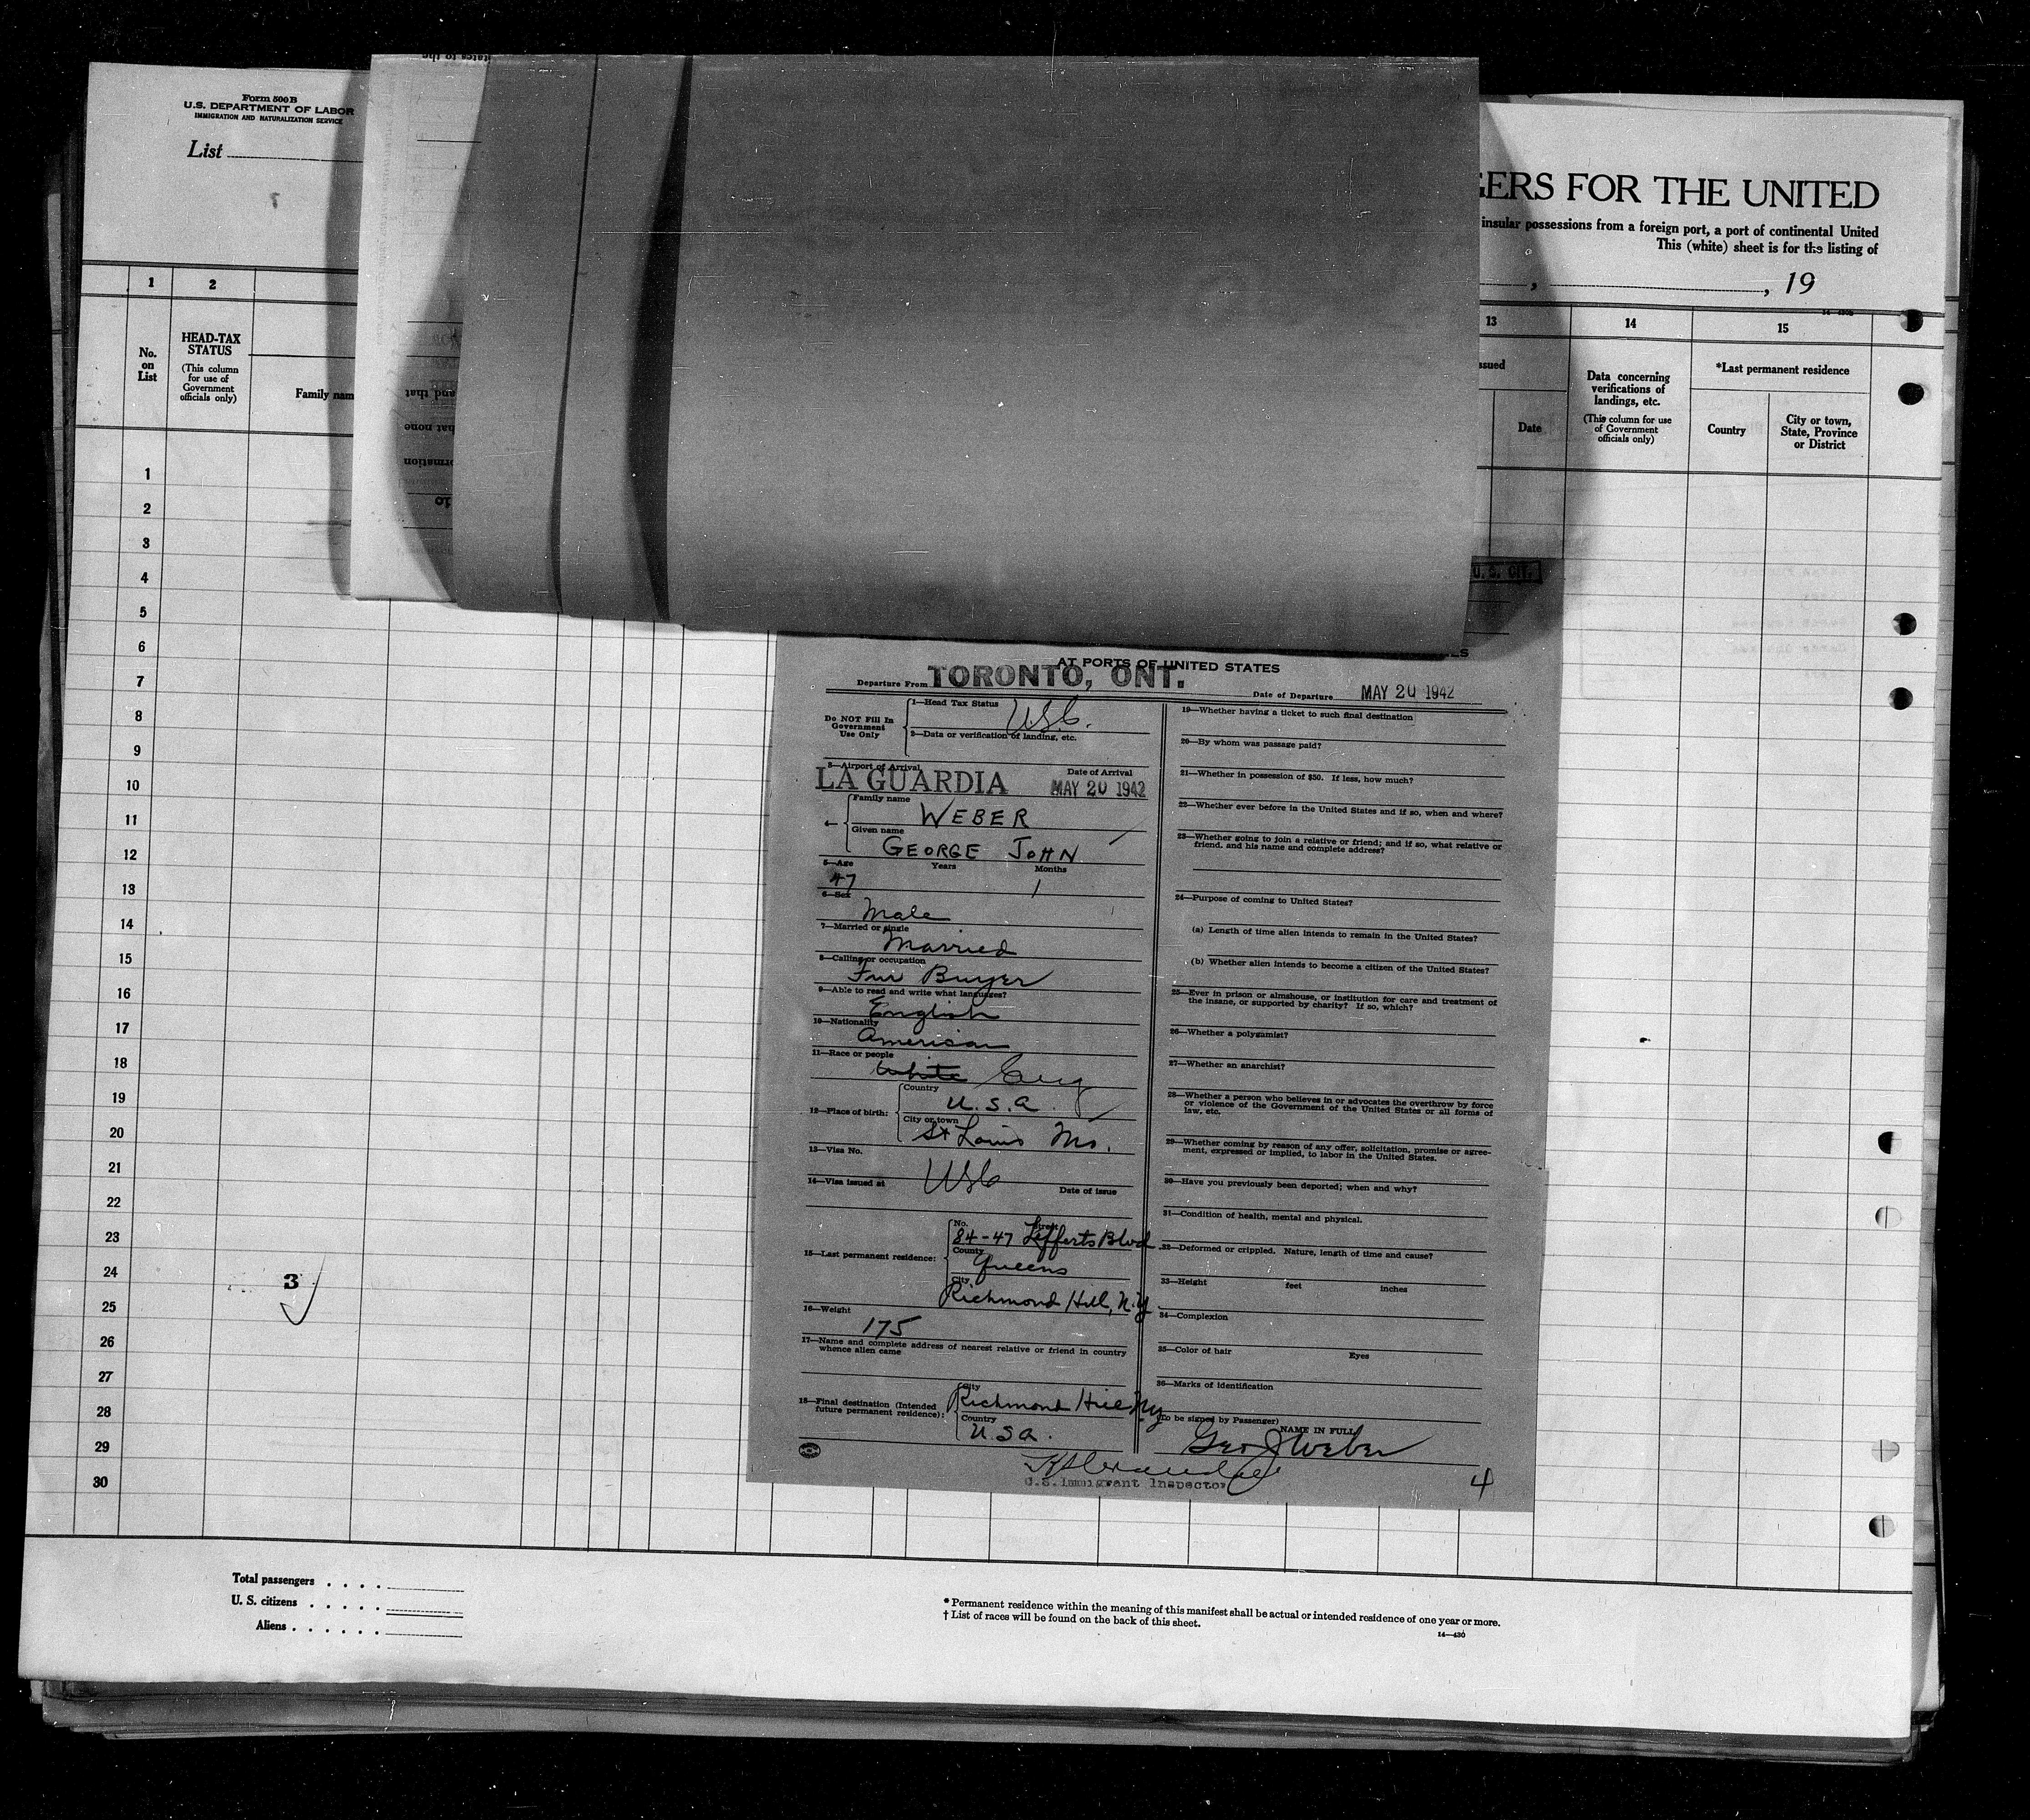 Form 500 B
U.S. DEPARTMENT OF LABOR
IMMIGRATION AND NATURALIZATION SERVICE
List
GERS FOR THE UNITED
insular possessions from a foreign port, a port of continental United
This (white) sheet is for the listing of
, , 19
1 2 13 14 15
No. on List
HEAD-TAX STATUS
(This column for use of Government officials only)
Family nam
ssued
Date
Data concerning verifications of landings, etc.
(This column for use of Government officials only)
*Last permanent residence
Country
City or town, State, Province or District
U. S. CIT.
1
2
3
4
5
6
7
8
9
10
11
12
13
14
15
16
17
18
19
20
21
22
23
24
25
26
27
28
29
30
3
AT PORTS OF UNITED STATES
Departure From TORONTO, ONT. Date of Departure MAY 20 1942
Do NOT Fill In Government Use Only
1—Head Tax Status USC.
2—Data or verification of landing, etc.
3—Airport of Arrival Date of Arrival
LA GUARDIA MAY 20 1942
4—
Family name
WEBER
Given name
GEORGE JOHN
5—Age Years Months
47 1
6—Sex
Male
7—Married or single
Married
8—Calling or occupation
Fur Buyer
9—Able to read and write what languages?
English
10—Nationality
American
11—Race or people
White Eng
12—Place of birth:
Country
U.S.A.
City or town
St Louis Mo.
13—Visa No.
USC
14—Visa issued at Date of issue
15—Last permanent residence:
No. Street
84-47 Lefferts Blvd
County
Queens
City
Richmond Hill, N.Y.
16—Weight
175
17—Name and complete address of nearest relative or friend in country
whence alien came
18—Final destination (Intended
future permanent residence):
City
Richmond Hill NY
Country
U.S.A.
19—Whether having a ticket to such final destination
20—By whom was passage paid?
21—Whether in possession of $50. If less, how much?
22—Whether ever before in the United States and if so, when and where?
23—Whether going to join a relative or friend; and if so, what relative or
friend. and his name and complete address?
24—Purpose of coming to United States?
(a) Length of time alien intends to remain in the United States?
(b) Whether alien intends to become a citizen of the United States?
25—Ever in prison or almshouse, or institution for care and treatment of
the insane, or supported by charity? If so, which?
26—Whether a polygamist?
27—Whether an anarchist?
28—Whether a person who believes in or advocates the overthrow by force
or violence of the Government of the United States or all forms of
law, etc.
29—Whether coming by reason of any offer, solicitation, promise or agree-
ment, expressed or implied, to labor in the United States.
30—Have you previously been deported; when and why?
31—Condition of health, mental and physical.
32—Deformed or crippled. Nature, length of time and cause?
33—Height feet inches
34—Complexion
35—Color of hair Eyes
36—Marks of identification
(To be signed by Passenger)
NAME IN FULL
Geo J Weber
U.S. Immigrant Inspector
4
Total passengers . . . .
U. S. citizens . . . . .
Aliens . . . . . .
* Permanent residence within the meaning of this manifest shall be actual or intended residence of one year or more.
† List of races will be found on the back of this sheet.
14—430